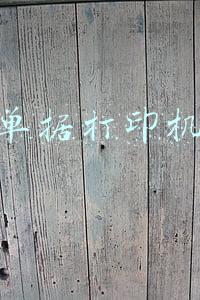 单据打印机